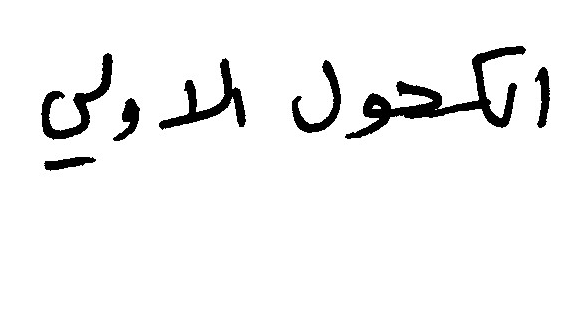 الكحول الاولي